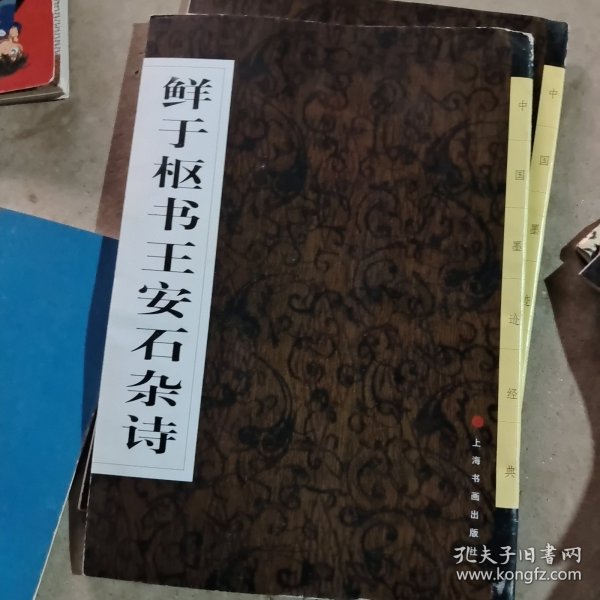 鲜于枢书王安石杂诗
中国墨迹经典
上海书画出版社
中国墨迹
孔夫子旧书网
www.kongfz.com